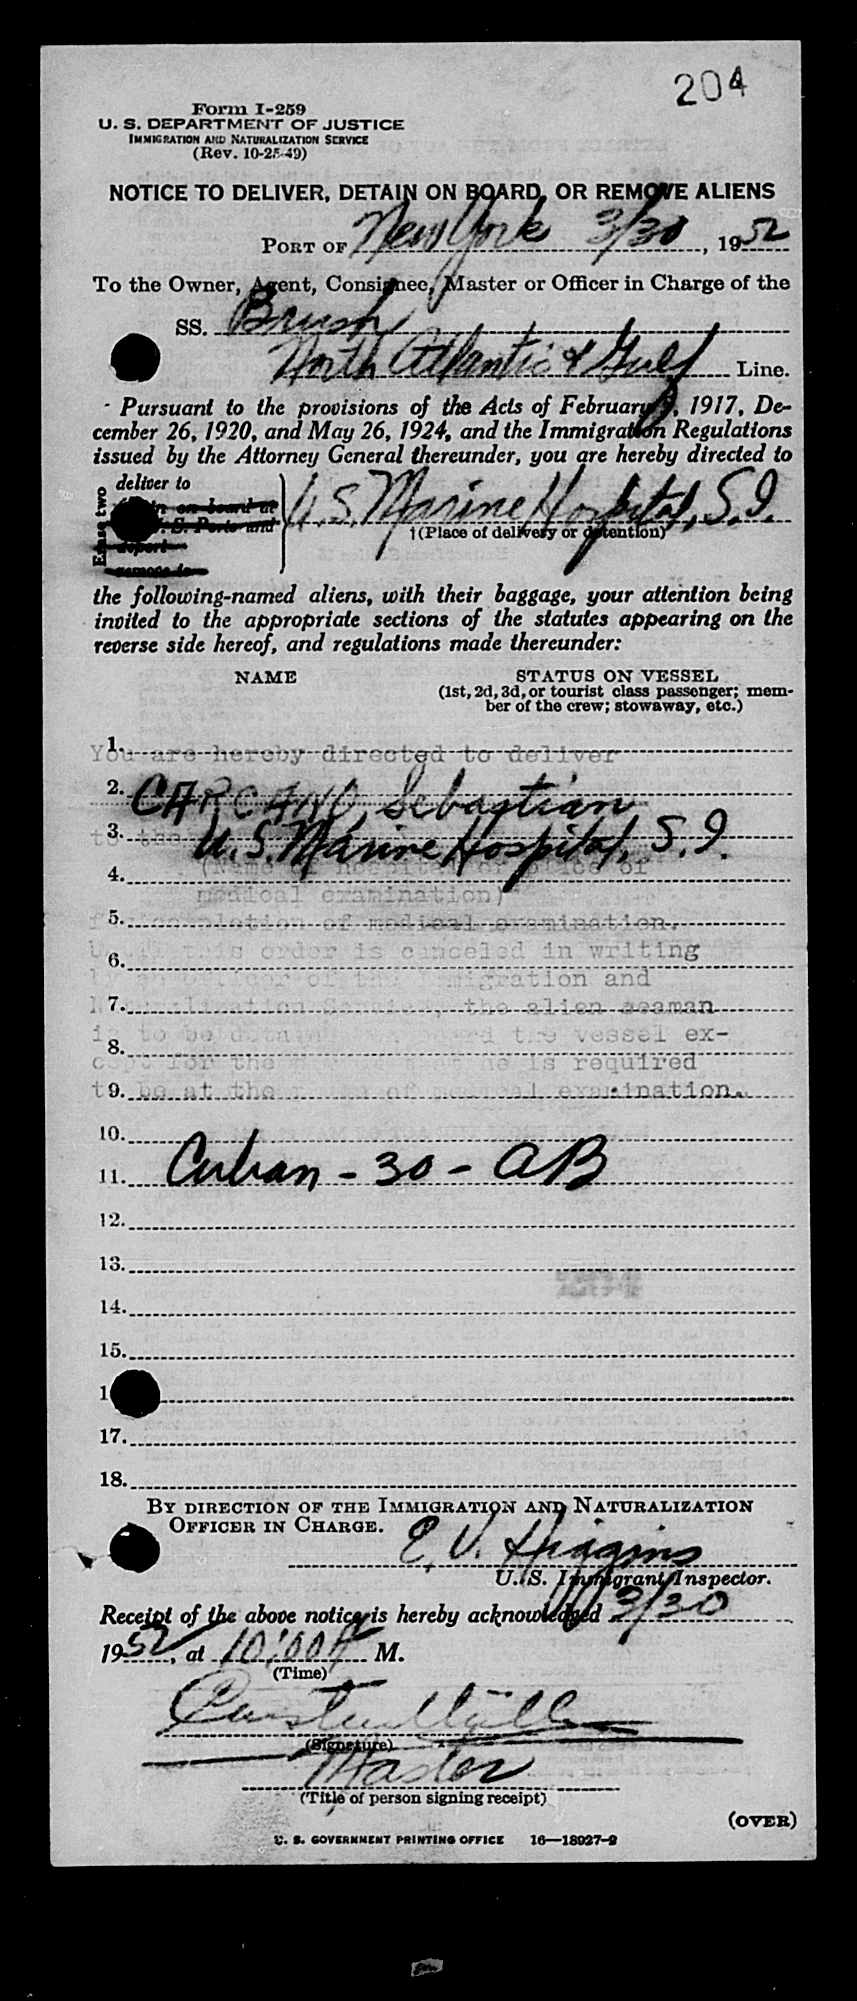 204
Form I-259
U. S. DEPARTMENT OF JUSTICE
IMMIGRATION AND NATURALIZATION SERVICE
(Rev. 10-25-49)
NOTICE TO DELIVER, DETAIN ON BOARD, OR REMOVE ALIENS
PORT OF New York 3/30, 1952
To the Owner, Agent, Consignee, Master or Officer in Charge of the
SS. Brush
North Atlantic & Gulf Line.
Pursuant to the provisions of the Acts of February 5, 1917, De-
cember 26, 1920, and May 26, 1924, and the Immigration Regulations
issued by the Attorney General thereunder, you are hereby directed to
Erase two
deliver to
on board at
U. S. Ports and
deport
remove to
U.S. Marine Hospital, S.I.
†(Place of delivery or detention)
the following-named aliens, with their baggage, your attention being
invited to the appropriate sections of the statutes appearing on the
reverse side hereof, and regulations made thereunder:
NAME STATUS ON VESSEL
(1st, 2d, 3d, or tourist class passenger; mem-
ber of the crew; stowaway, etc.)
1.
You are hereby directed to deliver
2. CARCANO, Sebastian
3. U.S. Marine Hospital, S.I.
(Name of hospital or place of
4.
medical examination)
5. for completion of medical examination.
Until this order is canceled in writing
6.
by an officer of the Immigration and
7. Naturalization Service, the alien seaman
is to be detained on board the vessel ex-
8.
cept for the he is required
9. to be at the place of medical examination.
10.
11. Cuban - 30 - AB
12.
13.
14.
15.
1
17.
18.
BY DIRECTION OF THE IMMIGRATION AND NATURALIZATION
OFFICER IN CHARGE.
E. V. Higgins
U. S. Immigrant Inspector.
Receipt of the above notice is hereby acknowledged 3/30
1952, at 10:00 A M.
(Time)
(Signature)
Master
(Title of person signing receipt)
(OVER)
U. S. GOVERNMENT PRINTING OFFICE 16—18027-2